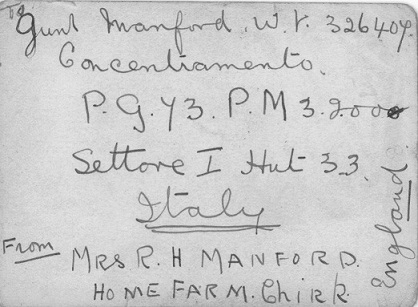 To Gunr Manford. W. T. 326404.
Concentramento.
P. G. 73. P. M 3.200
Settore I Hut 33.
Italy
From MRS R. H MANFORD.
HOME FARM. Chirk.
England